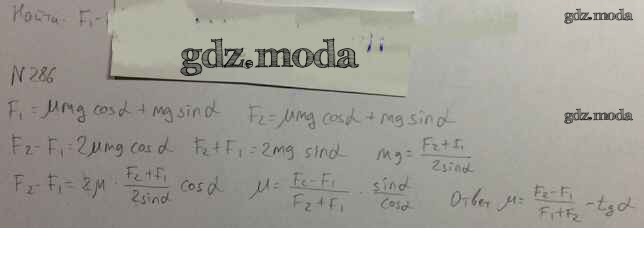 Найти: F₁-
gdz.moda
gdz.moda
N 286
F₁ = μmg cosα + mg sinα F₂ = μmg cosα + mg sinα
gdz.moda
F₂ - F₁ = 2μmg cosα F₂ + F₁ = 2mg sinα mg = (F₂ + F₁)/(2sinα)
F₂ - F₁ = 2μ · (F₂ + F₁)/(2sinα) cosα μ = (F₂ - F₁)/(F₂ + F₁) · sinα/cosα Ответ μ = (F₂ - F₁)/(F₁ + F₂) - tgα